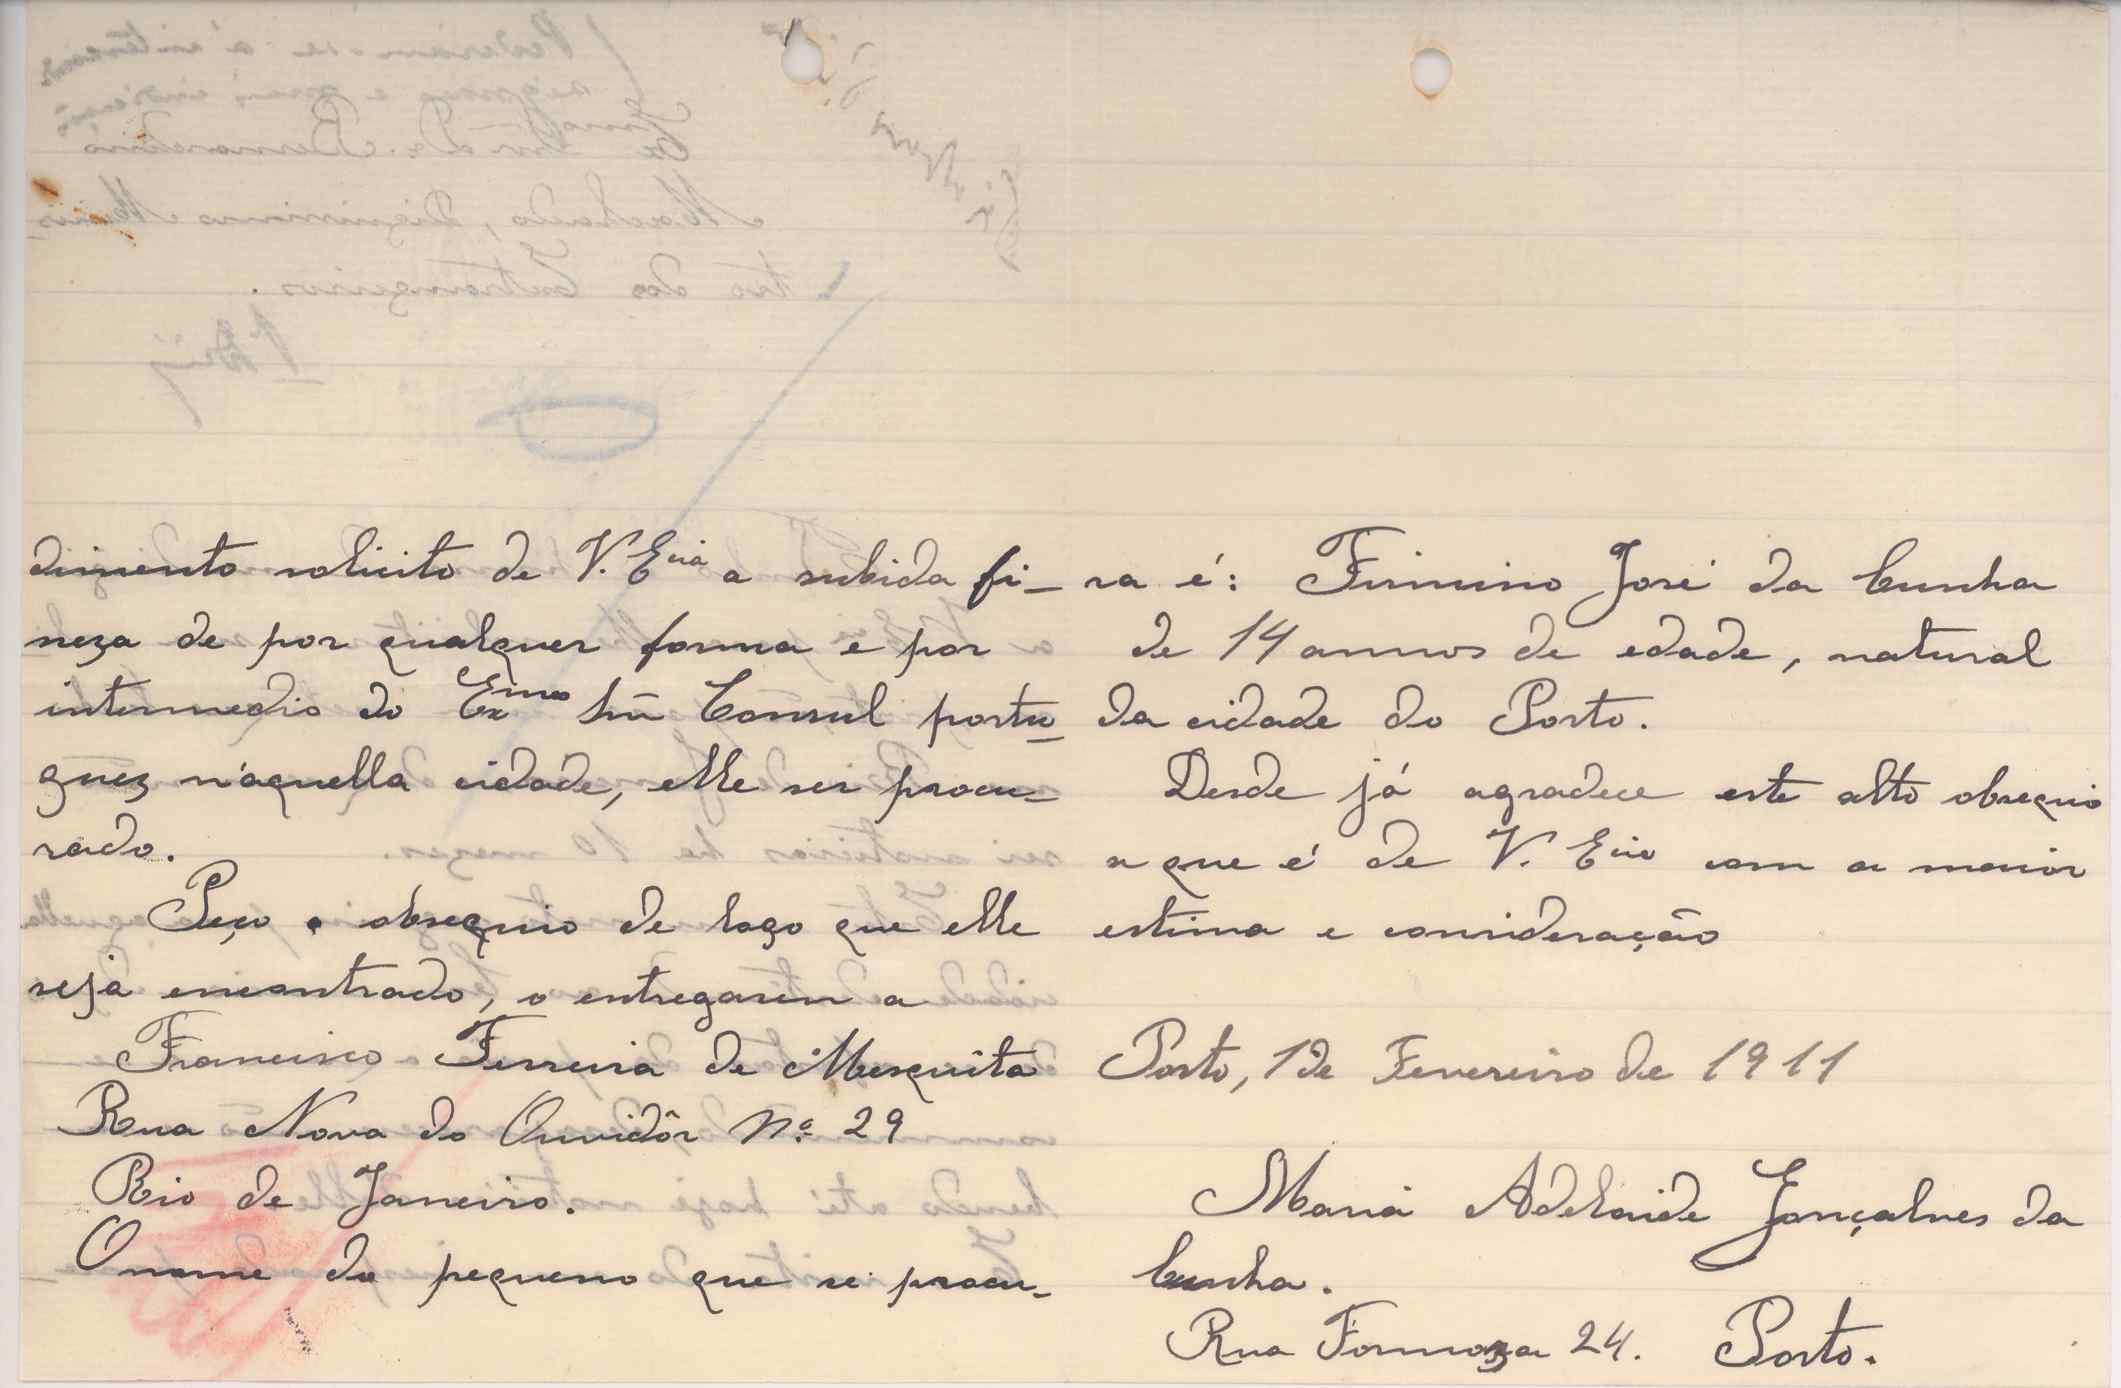 dimento solicito de V. Ecia a subida fi-
neza de por qualquer forma e por
intermedio do Exmo Snr Consul portu-
guez n'aquella cidade, elle ser procu-
rado.
Peço o obsequio de logo que elle
seja encontrado, o entregarem a
Francisco Ferreira de Mesquita
Rua Nova do Ouvidôr Nº 29
Rio de Janeiro.
O nome do pequeno que se procu-
ra é: Firmino José da Cunha
de 14 annos de edade, natural
da cidade do Porto.
Desde já agradece este alto obsequio
a que é de V. Ecia com a maior
estima e consideração
Porto, 1 de Fevereiro de 1911
Maria Adelaide Gonçalves da
Cunha.
Rua Formoza 24. Porto.